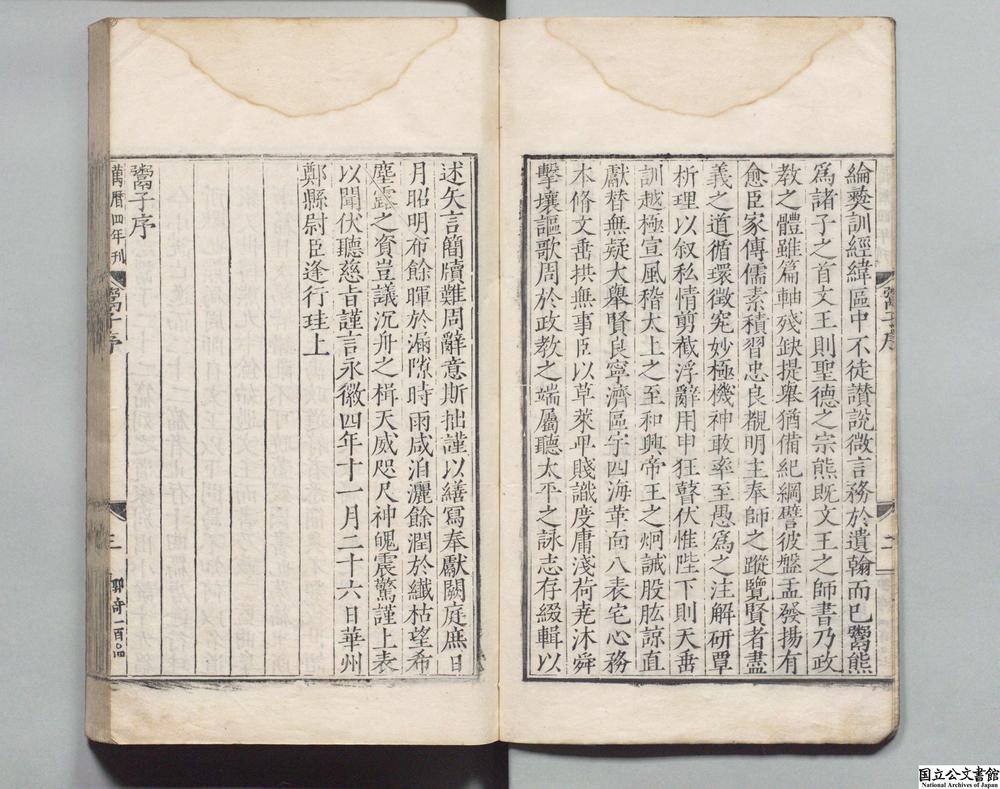 綸彜訓經緯區中不徒讃說微言務於遺翰而已鬻熊
爲諸子之首文王則聖德之宗熊旣文王之師書乃政
教之體雖篇軸殘缺提舉猶備紀綱譬彼盤盂發揚有
愈臣家傳儒素積習忠良覩明主奉師之蹤覽賢者盡
義之道循環徵究妙極機神敢率至愚爲之注解研覃
析理以叙私情剪截浮辭用申狂瞽伏惟陛下則天垂
訓越極宣風稽太上之至和興帝王之炯誡股肱諒直
獻替無疑大舉賢良寧濟區宇四海革面八表宅心務
本脩文垂拱無事臣以草萊卑賤識度庸淺荷堯沐舜
擊壤謳歌周於政教之端屬聽太平之詠志存綴輯以
鬻子序
二
述矢言簡牘難周辭意斯拙謹以繕寫奉獻闕庭庶日
月昭明布餘暉於滿隙時雨咸洎灑餘潤於纖枯望希
塵露之資豈議沉舟之楫天威咫尺神魄震驚謹上表
以聞伏聽慈旨謹言永徽四年十一月二十六日華州
鄭縣尉臣逢行珪上
鬻子序
萬曆四年刋
鬻子序
三
郭奇一百〇四
国立公文書館
National Archives of Japan